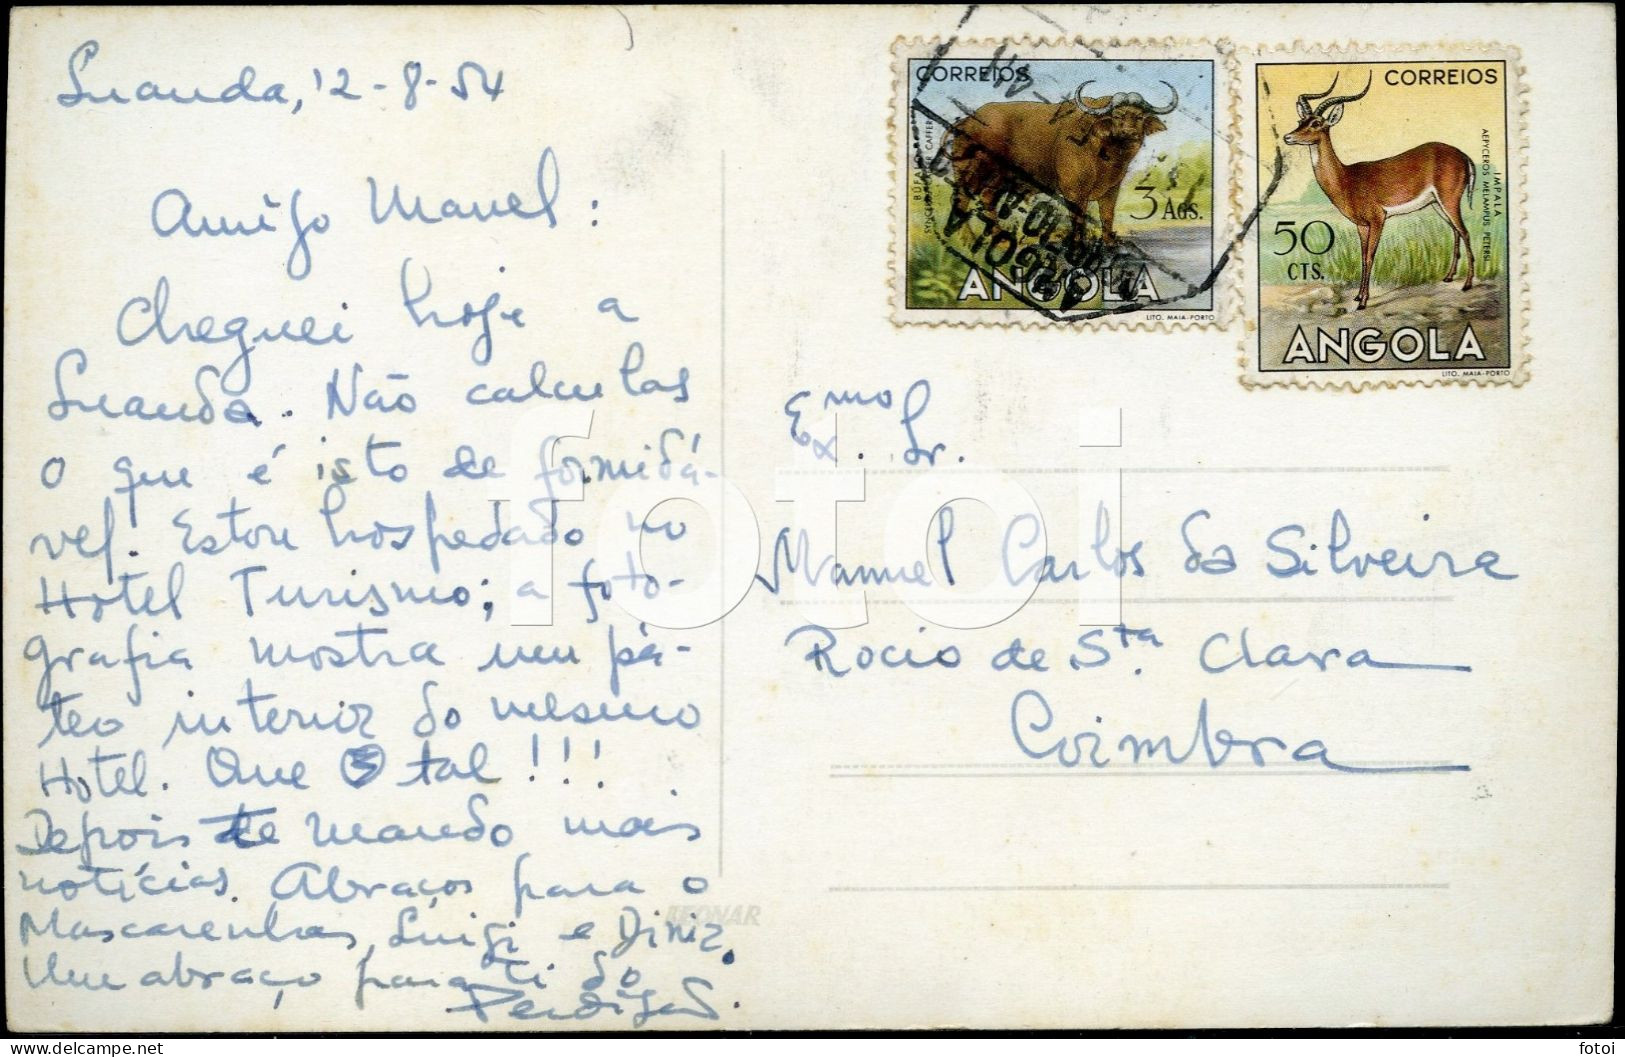 Luanda, 12-8-54
Amigo Manel:
Cheguei hoje a
Luanda. Não calculas
o que é isto de formidá-
vel. Estou hospedado no
Hotel Turismo; a foto-
grafia mostra um pá-
teo interior do mesmo
Hotel. Que tal!!!
Depois te mando mais
notícias. Abraços para o
Mascarenhas, Luigi e Diniz.
Um abraço para ti do
Perdigão.
CORREIOS
BÚFALO
3 AGS.
ANGOLA
LITO. MAIA-PORTO
CORREIOS
IMPALA
AEPYCEROS MELAMPUS PETERSI
50
CTS.
ANGOLA
LITO. MAIA-PORTO
Exmo. Sr.
Manuel Carlos da Silveira
Rocio de Sta. Clara
Coimbra
LEONAR
fotoi
Copyright © fotoi
www.delcampe.net
fotoi